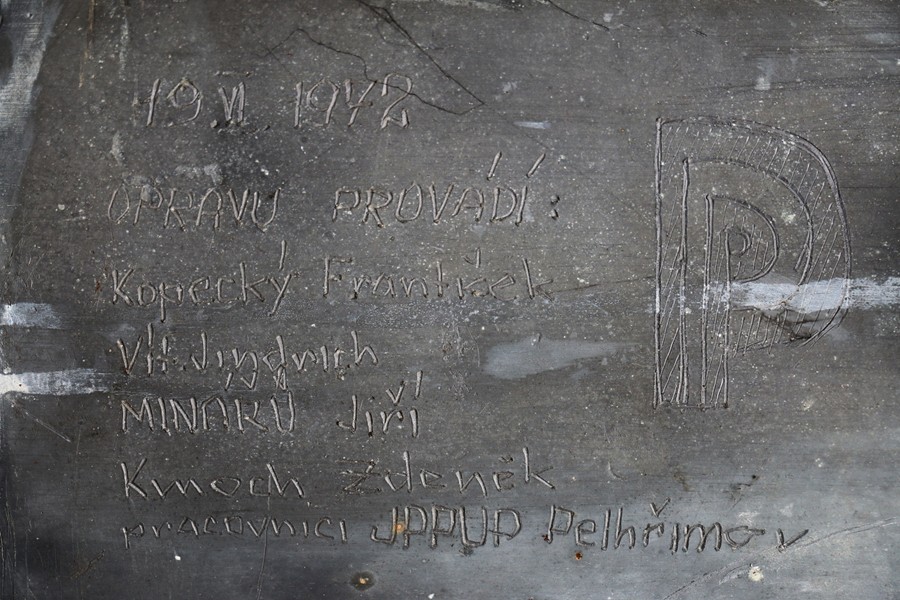 19 VI. 1972
OPRAVU PROVÁDÍ:
Kopecký František
Vít. Jindrich
MINÁŘŮ Jiří
Kmoch Zdeněk
pracovnici JPPUP Pelhřimov
P